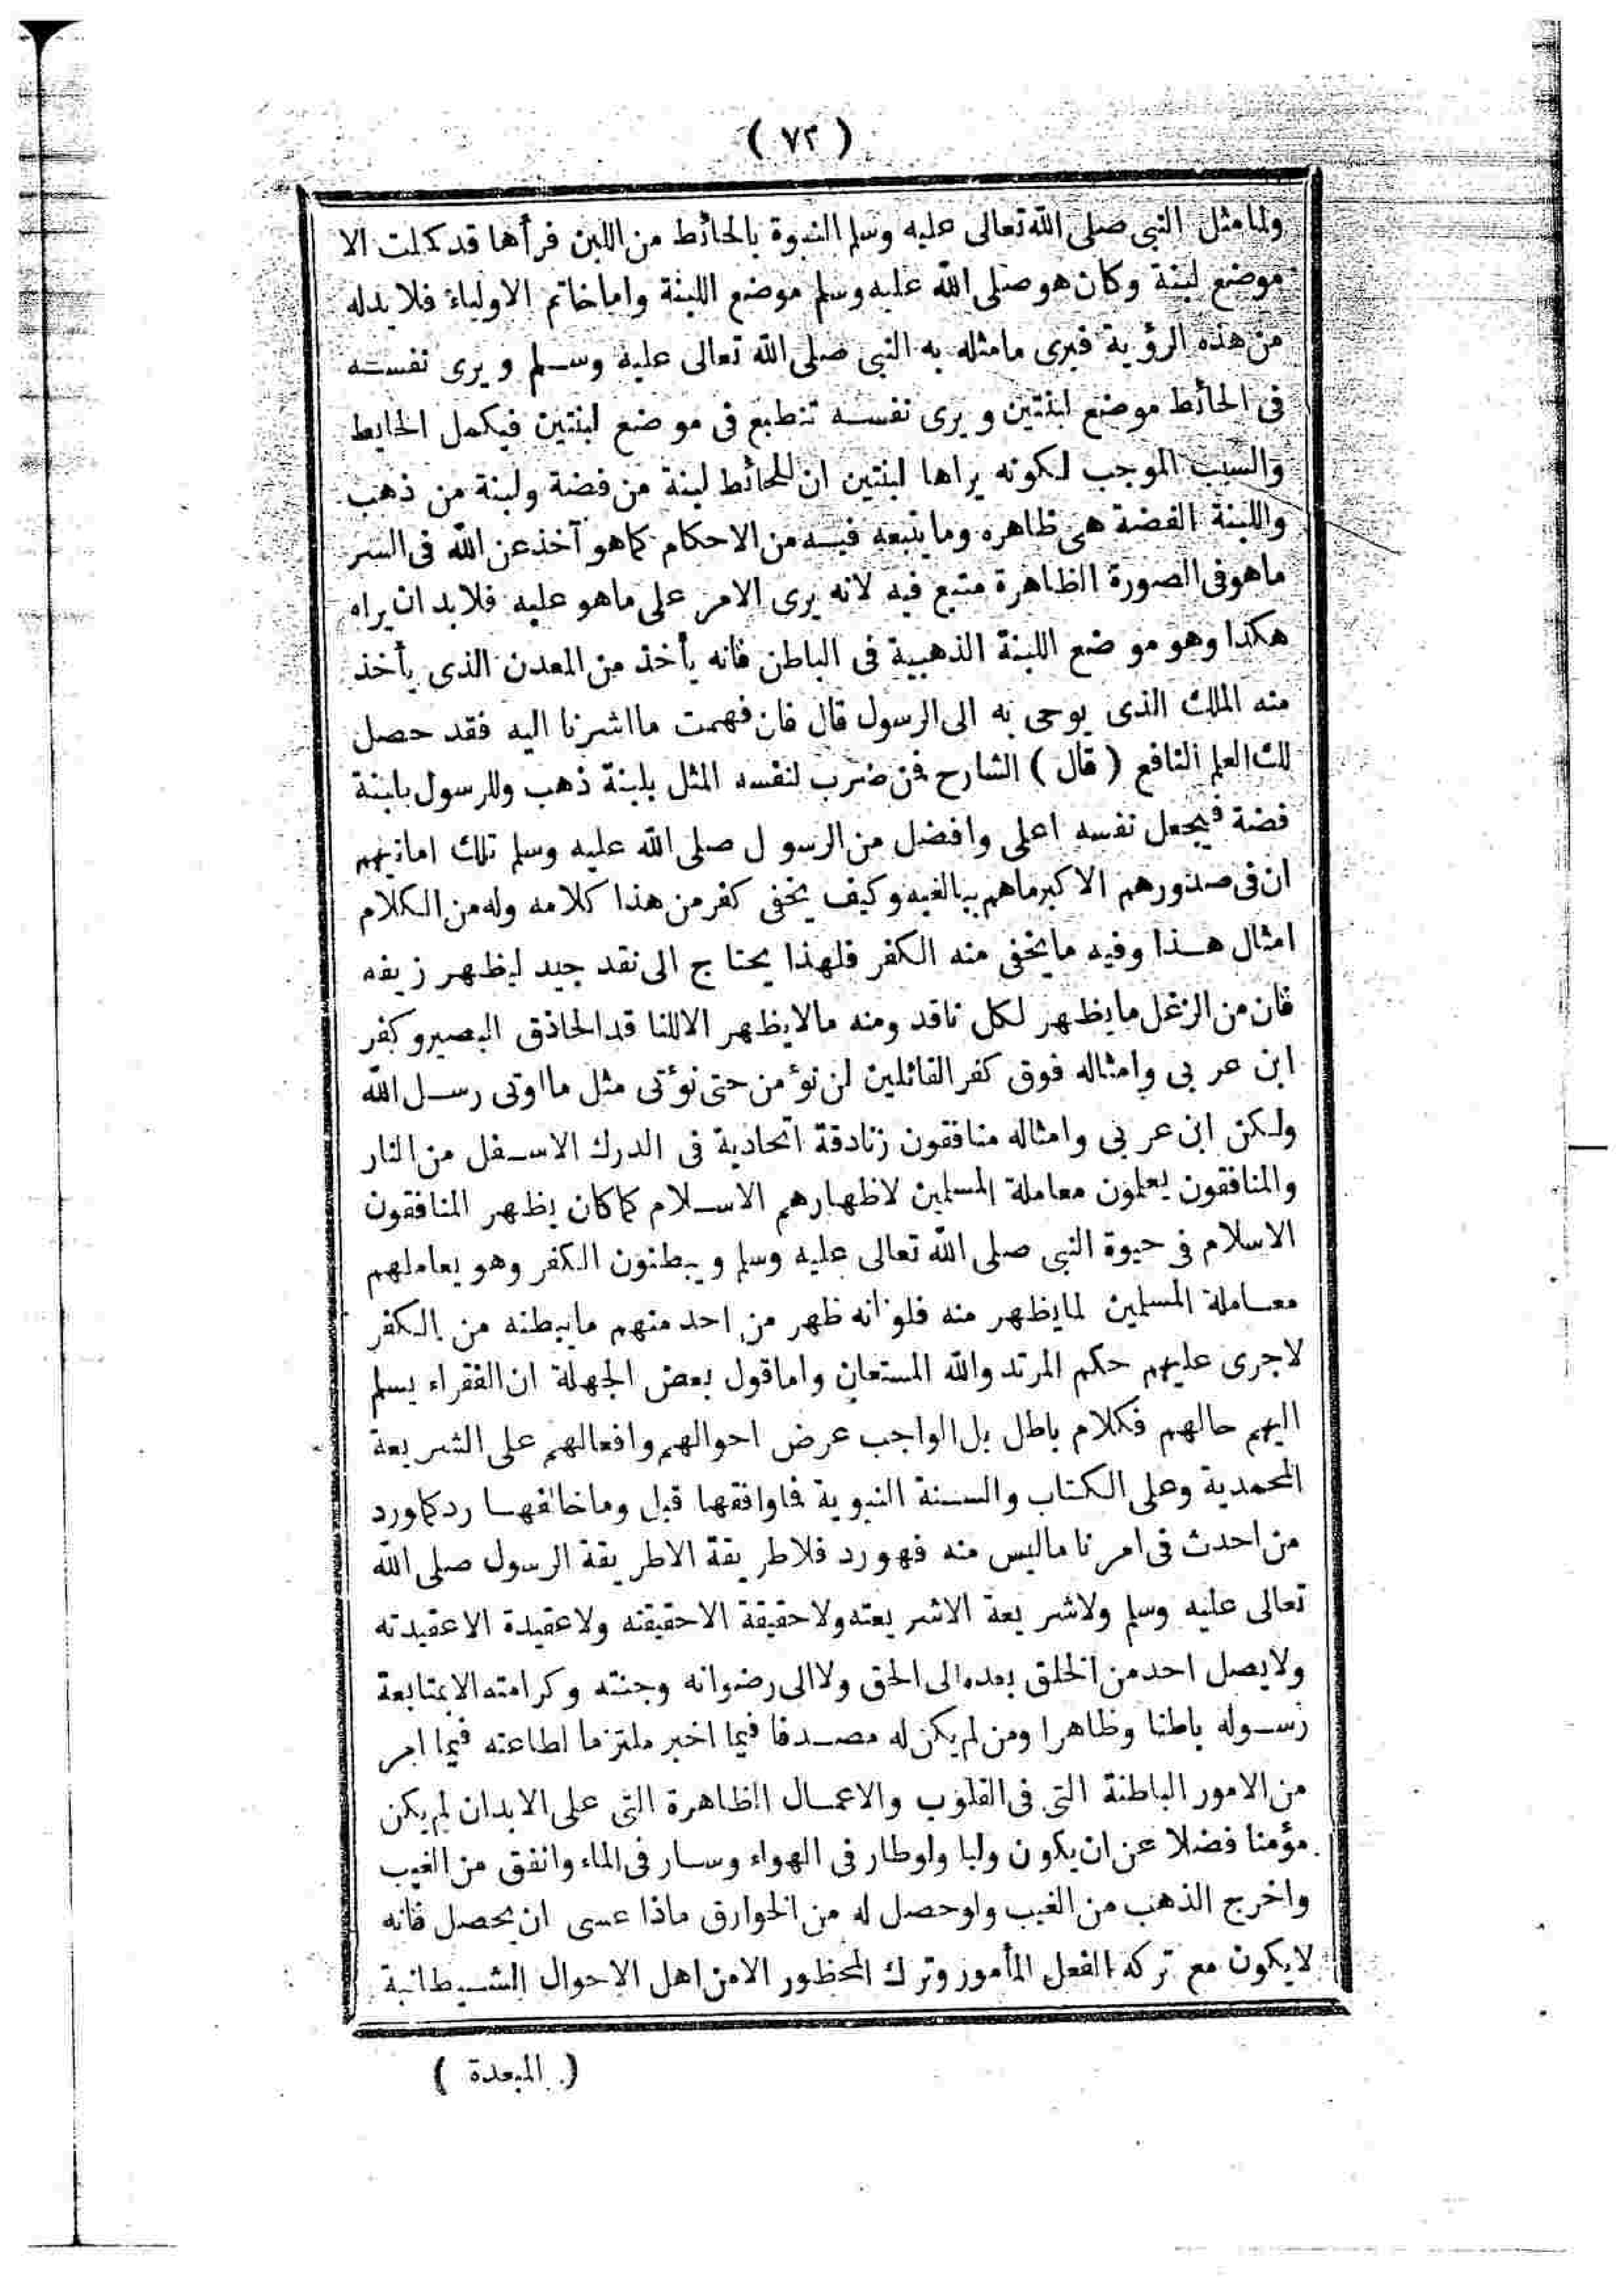 ( ٧٢ )
ولما مثل النبى صلى الله تعالى عليه وسلم النبوة بالحائط من اللبن فرأها قد كملت الا
موضع لبنة وكان هو صلى الله عليه وسلم موضع اللبنة واما خاتم الاولياء فلا بدله
من هذه الرؤية فيرى مامثله به النبى صلى الله تعالى عليه وسلم ويرى نفسه
فى الحائط موضع لبنتين ويرى نفسه تنطبع فى موضع لبنتين فيكمل الحايط
والسبب الموجب لكونه يراها لبنتين ان للحائط لبنة من فضة ولبنة من ذهب
واللبنة الفضة هى ظاهره وما يتبعه فيه من الاحكام كما هو آخذ عن الله فى السر
ما هو فى الصورة الظاهرة متبع فيه لانه يرى الامر على ماهو عليه فلا بد ان يراه
هكذا وهو موضع اللبنة الذهبية فى الباطن فانه يأخذ من المعدن الذى يأخذ
منه الملك الذى يوحى به الى الرسول قال فان فهمت ما اشرنا اليه فقد حصل
لك العلم النافع ( قال ) الشارح فمن ضرب لنفسه المثل بلبنة ذهب وللرسول بلبنة
فضة فيجعل نفسه اعلى وافضل من الرسول صلى الله عليه وسلم تلك امانيهم
ان فى صدورهم الا كبر ماهم ببالغيه وكيف يخفى كفر من هذا كلامه وله من الكلام
امثال هذا وفيه ما يخفى منه الكفر فلهذا يحتاج الى نقد جيد ليظهر زيفه
فان من الزغل ما يظهر لكل ناقد ومنه مالا يظهر الا للنا قد الحاذق البصير وكفر
ابن عربى وامثاله فوق كفر القائلين لن نؤمن حتى نؤتى مثل ما اوتى رسل الله
ولكن ابن عربى وامثاله منافقون زنادقة اتحادية فى الدرك الاسفل من النار
والمنافقون يعلمون معاملة المسلمين لاظهارهم الاسلام كما كان يظهر المنافقون
الاسلام فى حيوة النبى صلى الله تعالى عليه وسلم ويبطنون الكفر وهو يعاملهم
معاملة المسلمين لما يظهر منه فلو انه ظهر من احد منهم ما يبطنه من الكفر
لاجرى عليهم حكم المرتد والله المستعان واما قول بعض الجهلة ان الفقراء يسلم
اليهم حالهم فكلام باطل بل الواجب عرض احوالهم وافعالهم على الشريعة
المحمدية وعلى الكتاب والسنة النبوية فما وافقها قبل وما خالفها رد كما ورد
من احدث فى امرنا ماليس منه فهو رد فلا طريقة الا طريقة الرسول صلى الله
تعالى عليه وسلم ولا شريعة الا شريعته ولا حقيقة الا حقيقته ولا عقيدة الا عقيدته
ولا يصل احد من الخلق بعده الى الحق ولا الى رضوانه وجنته وكرامته الا بمتابعة
رسوله باطنا وظاهرا ومن لم يكن له مصدقا فيما اخبر ملتزما لطاعته فيما امر
من الامور الباطنة التى فى القلوب والاعمال الظاهرة التى على الابدان لم يكن
مؤمنا فضلا عن ان يكون وليا ولو طار فى الهواء وسار فى الماء وانفق من الغيب
واخرج الذهب من الغيب ولو حصل له من الخوارق ماذا عسى ان يحصل فانه
لا يكون مع تركه الفعل المأمور وترك المحظور الا من اهل الاحوال الشيطانية
( المبعدة )